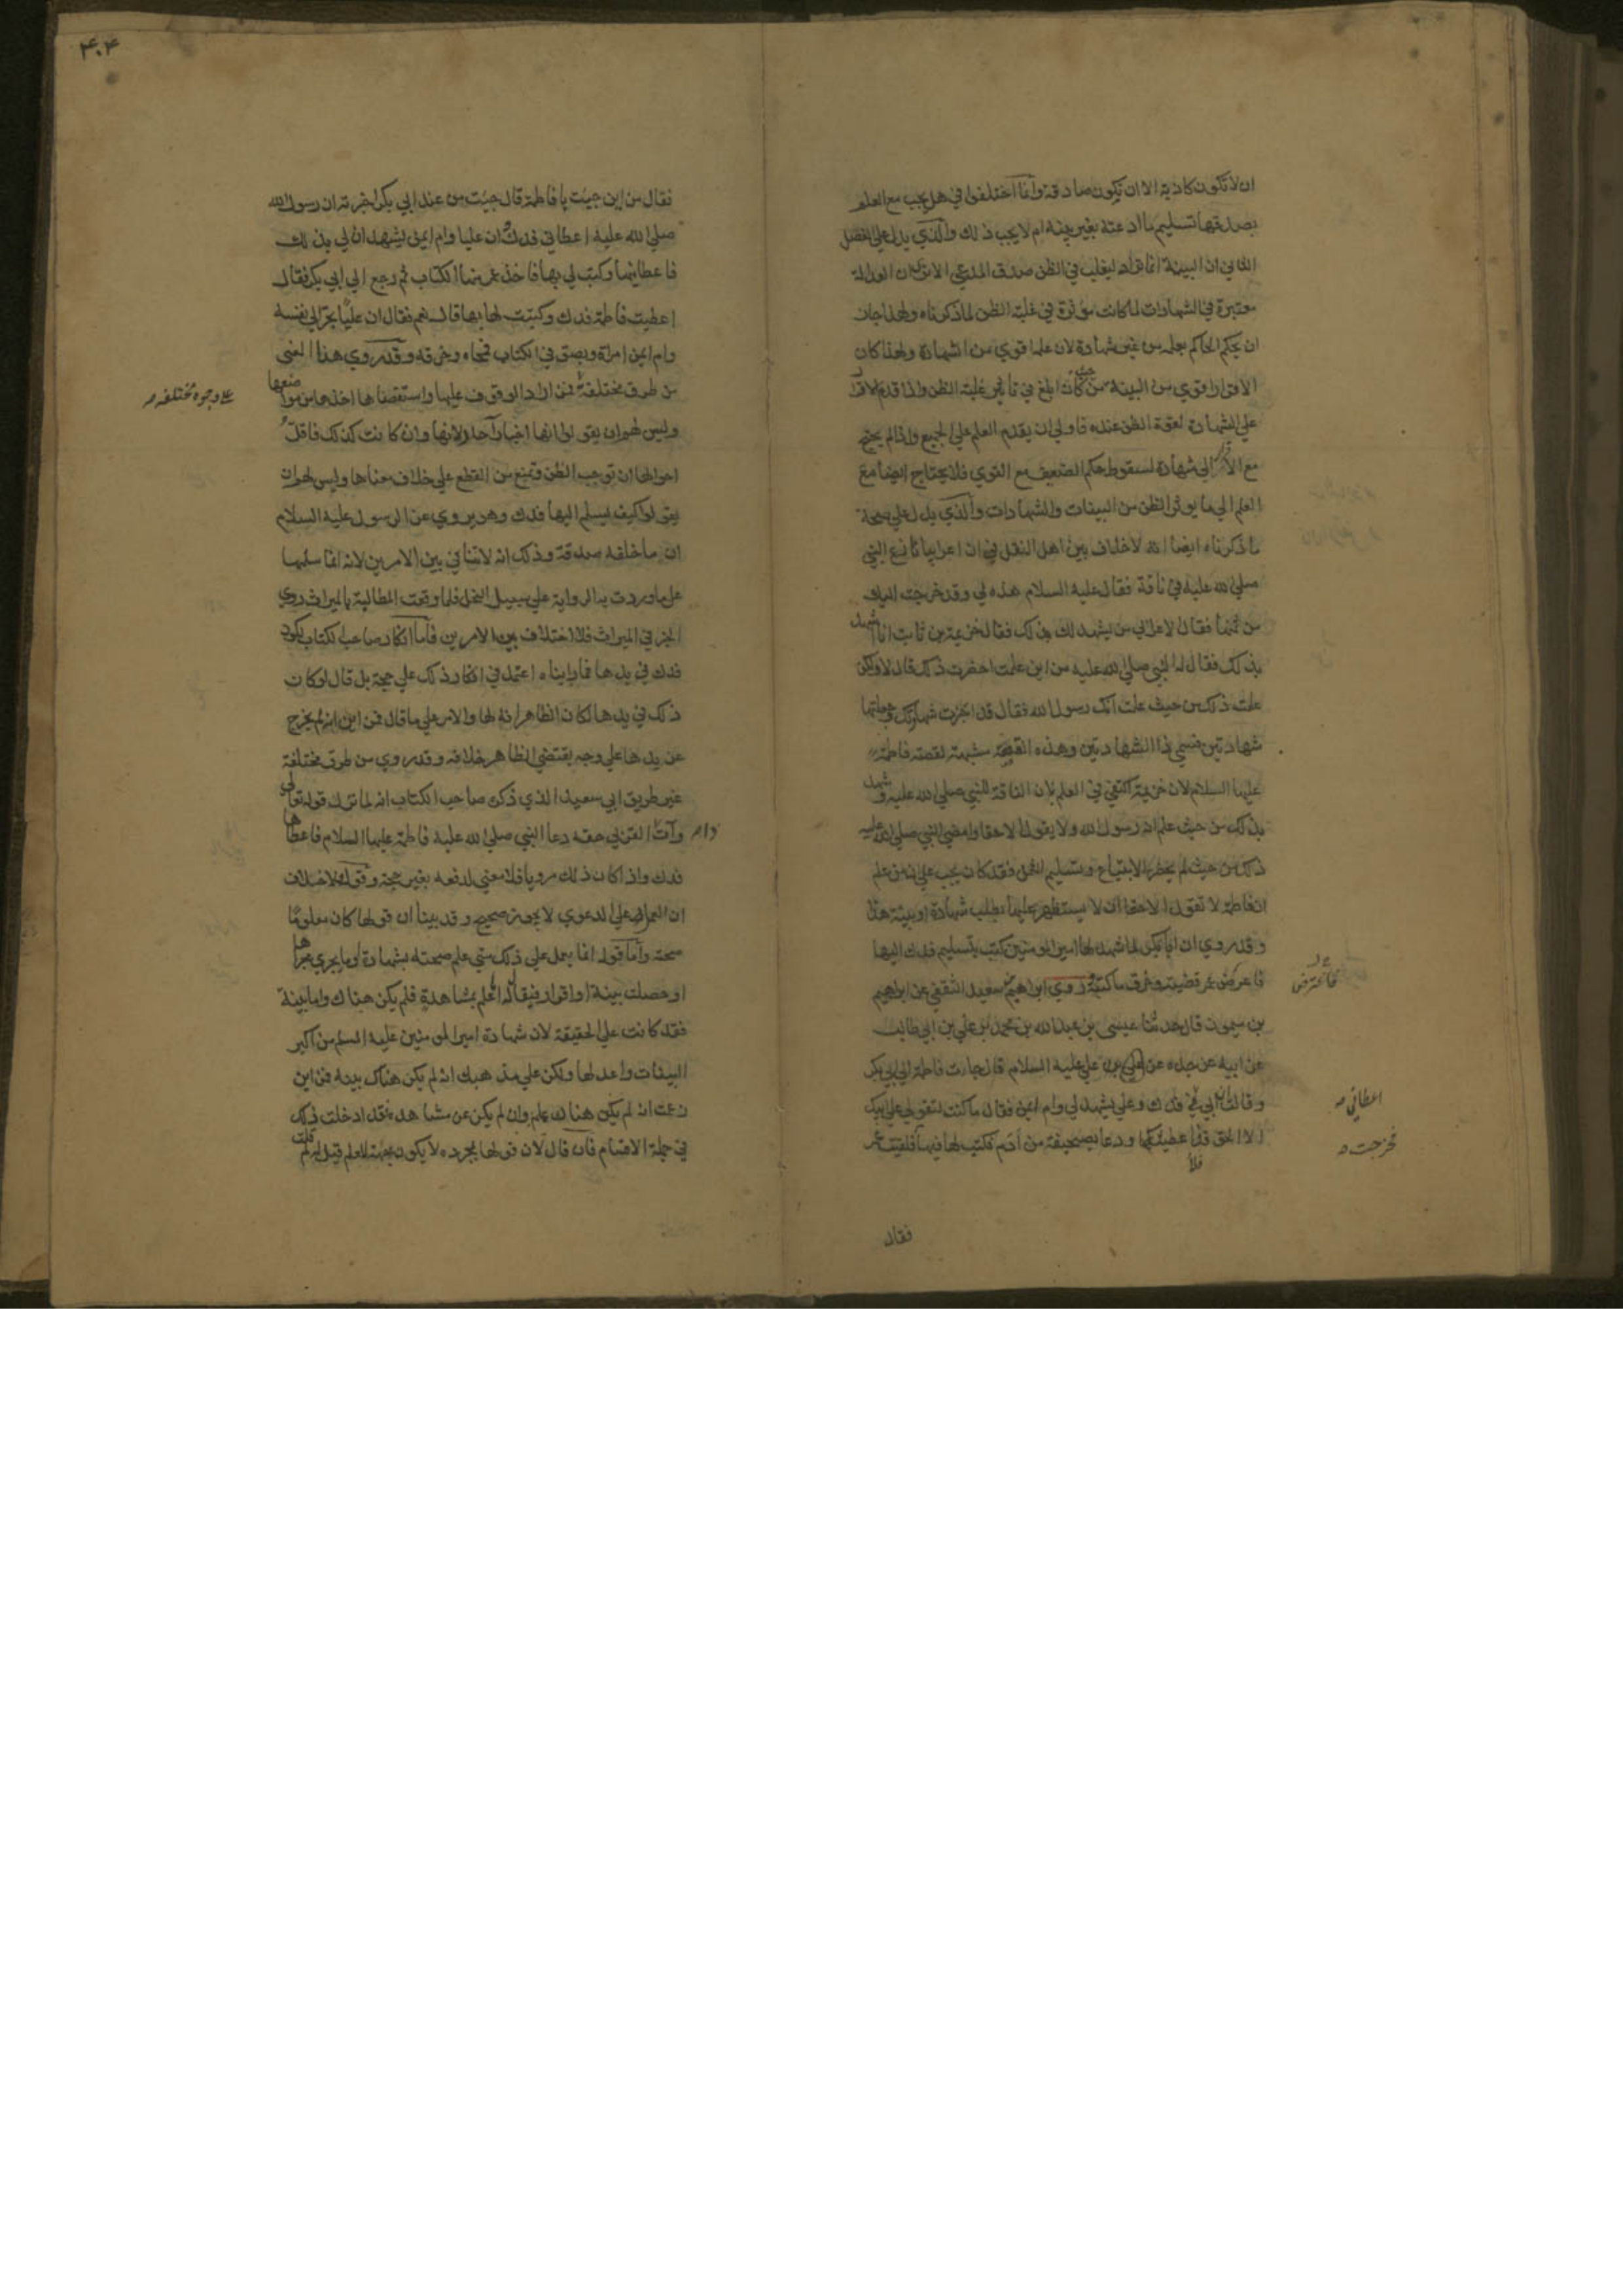 ان لا تكون كاذبة الا ان تكون صادقة وانما اختلفوا في هل يجب مع العلم
بصدقها تسليم ما ادعته بغير بينة ام لا يجب ذلك والذي يدل على الفصل
الثاني ان البينة انما تراد ليغلب في الظن صدق المدعي الا ترى ان العدالة
معتبرة في الشهادات لما كانت مؤثرة في غلبة الظن لما ذكرناه ولهذا جاز
ان يحكم الحاكم بعلمه من غير شهادة لان علمه اقوى من الشهادة ولهذا كان
الاقرار اقوي من البينة من حيث كان ابلغ في تاثير غلبة الظن واذا قدم الاقرار
علي الشهادة لقوة الظن عنده فاولي ان يقدم العلم علي الجميع واذا لم يحتج
مع الاقرار الي شهادة لسقوط حكم الضعيف مع القوي فلا يحتاج ايضا مع
العلم الي ما يوثر الظن من البينات والشهادات والذي يدل علي صحة
ما ذكرناه ايضا انه لا خلاف بين اهل النقل في ان اعرابيا نازع النبي
صلي الله عليه في ناقة فقال عليه السلام هذه لي وقد خرجت اليك
من ثمنها فقال الاعرابي من يشهد لك بذلك فقال خزيمة بن ثابت انا اشهد
بذلك فقال له النبي صلي الله عليه من اين علمت احضرت ذلك قال لا ولكن
علمت ذلك من حيث علمت انك رسول الله فقال قد اجزت شهادتك وجعلتها
شهادتين فسمي ذا الشهادتين وهذه القصة مشبهة لقصة فاطمة
عليها السلام لان خزيمة اكتفي في العلم بان الناقة للنبي صلي الله عليه وشهد
بذلك من حيث علم انه رسول الله ولا يقول الا حقا وامضي النبي صلي الله عليه
ذلك من حيث لم يحضر الابتياع وتسليم الثمن فقد كان يجب علي من علم
ان فاطمة لا تقول الا حقا ان لا يستظهر عليها بطلب شهادة او بينة هذا
وقد روي ان ابا بكر لما شهد لها امير المومنين كتب بتسليم فدك اليها
فاعترض عمر قضيته وخرق ما كتبه روي ابراهيم بن سعيد الثقفي عن ابراهيم
بن ميمون قال حدثنا عيسى بن عبد الله بن محمد بن علي بن ابي طالب
عن ابيه عن جده عن علي عليه السلام قال جاءت فاطمة الي ابي بكر
وقالت ان ابي فدك وعلي يشهد لي وام ايمن فقال ما كنت لتقولي علي ابيك
الا الحق قد اعطيتكها ودعا بصحيفة من ادم فكتب لها فيها فلقيت عمر
فاعترض
اعطاني
فخرجت
فقال
٤٠٤
فقال من اين جئت يا فاطمة قال جئت من عند ابي بكر اخبرته ان رسول الله
صلي الله عليه اعطاني فدك وان عليا وام ايمن يشهد ان لي بذلك
فاعطانيها وكتب لي بها فاخذ عمر منها الكتاب ثم رجع الي ابي بكر فقال
اعطيت فاطمة فدك وكتبت لها بها قال نعم فقال ان عليا يجر الى نفسه
وام ايمن امراة وبصق في الكتاب فمحاه وخرقه وقد روي هذا المعني
من طرق مختلفة فمن اراد الوقوف عليها واستقصاها اخذها من مواضعها
علي وجوه مختلفه
وليس لهم ان يقولوا انها اخبار آحاد لانها وان كانت كذلك فاقل
احوالها ان توجب الظن وتمنع من القطع علي خلاف معناها وليس لهم ان
يقولوا كيف يسلم اليها فدك وهو يروي عن الرسول عليه السلام
ان ما خلفه صدقة وذلك انه لا تنافي بين الامرين لانه انما سلمها
علي ما وردت به الرواية علي سبيل النحل فلما وقعت المطالبة بالميراث روي
الخبر في الميراث فلا اختلاف بين الامرين فاما انكار صاحب الكتاب لكون
فدك في يدها فما رايناه اعتمد في انكار ذلك علي حجة بل قال لو كان
ذلك في يدها لكان الظاهر انه لها والامر علي ما قال فمن اين انه لم يخرج
عن يدها علي وجه يقتضي الظاهر خلافه وقد روي من طرق مختلفة
غير طريق ابي سعيد الذي ذكره صاحب الكتاب انه لما نزل قوله تعالي
وآت ذا القربي حقه دعا النبي صلي الله عليه فاطمة عليها السلام فاعطاها
فدك واذا كان ذلك مرويا فلا معني لدفعه بغير حجة وقوله لا خلاف
ان العمل علي الدعوي لا يجوز صحيح وقد بينا ان قولها كان معلوما
صحته واما قوله انما يعمل علي ذلك متي علم صحته بشهادة او ما يجري مجراها
او حصلت بينة او اقرار فيقال له اما علم بمشاهدة فلم يكن هناك واما بينة
فقد كانت علي الحقيقة لان شهادة امير المومنين عليه السلم من اكبر
البينات واعدلها ولكن علي مذهبك انه لم يكن هناك بينة فمن اين
زعمت انه لم يكن هناك علم وان لم يكن عن مشاهدة فقد ادخلت ذلك
في جملة الاقسام فان قال لان قولها بمجرده لا يكون جهة للعلم قيل له لم قلت